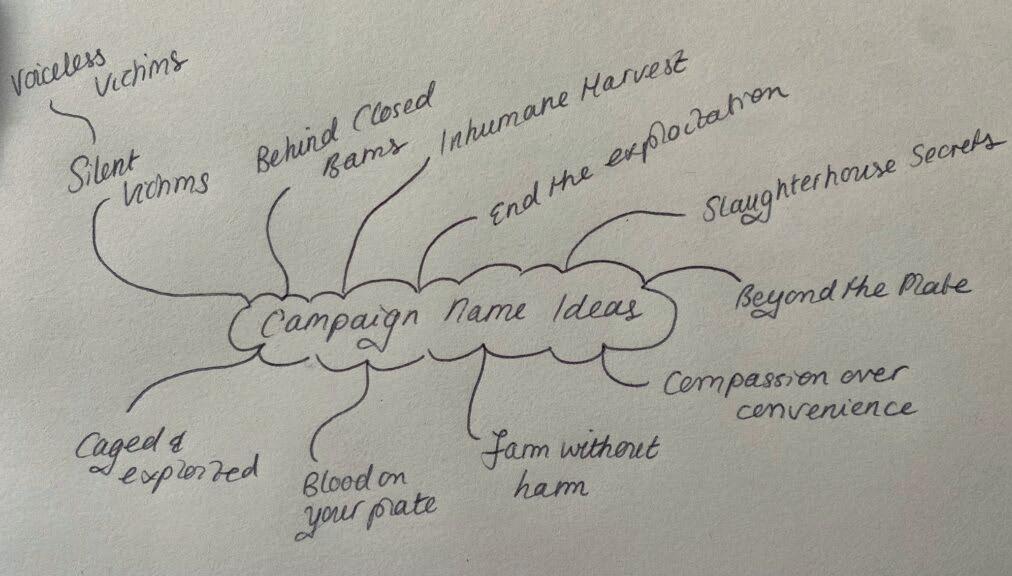 Voiceless
Victims
Silent
Victims
Behind Closed
Barns
Inhumane Harvest
End the exploitation
Slaughterhouse Secrets
Beyond the Plate
Campaign Name Ideas
Compassion over
convenience
Caged &
exploited
Blood on
your plate
Farm without
harm